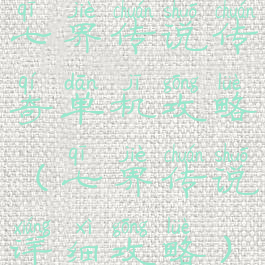 qī jiè chuán shuō chuán
七界传说传
qí dān jī gōng lüè
奇单机攻略
qī jiè chuán shuō
（七界传说
xiáng xì gōng lüè
详细攻略）